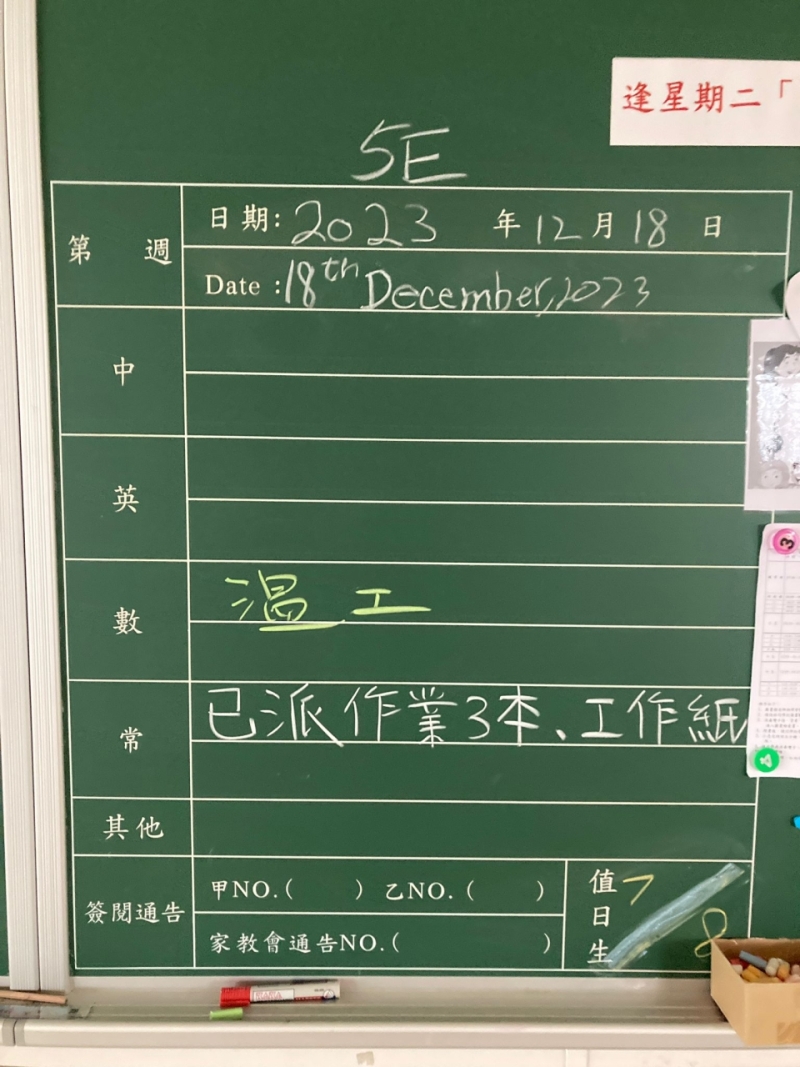 逢星期二「
5E
第 週
日期: 2023 年 12 月 18 日
Date : 18th December, 2023
中
英
數 温工
常 已派作業3本、工作紙
其他
簽閱通告
甲NO.( ) 乙NO.( )
家教會通告NO.( )
值日生 7 8